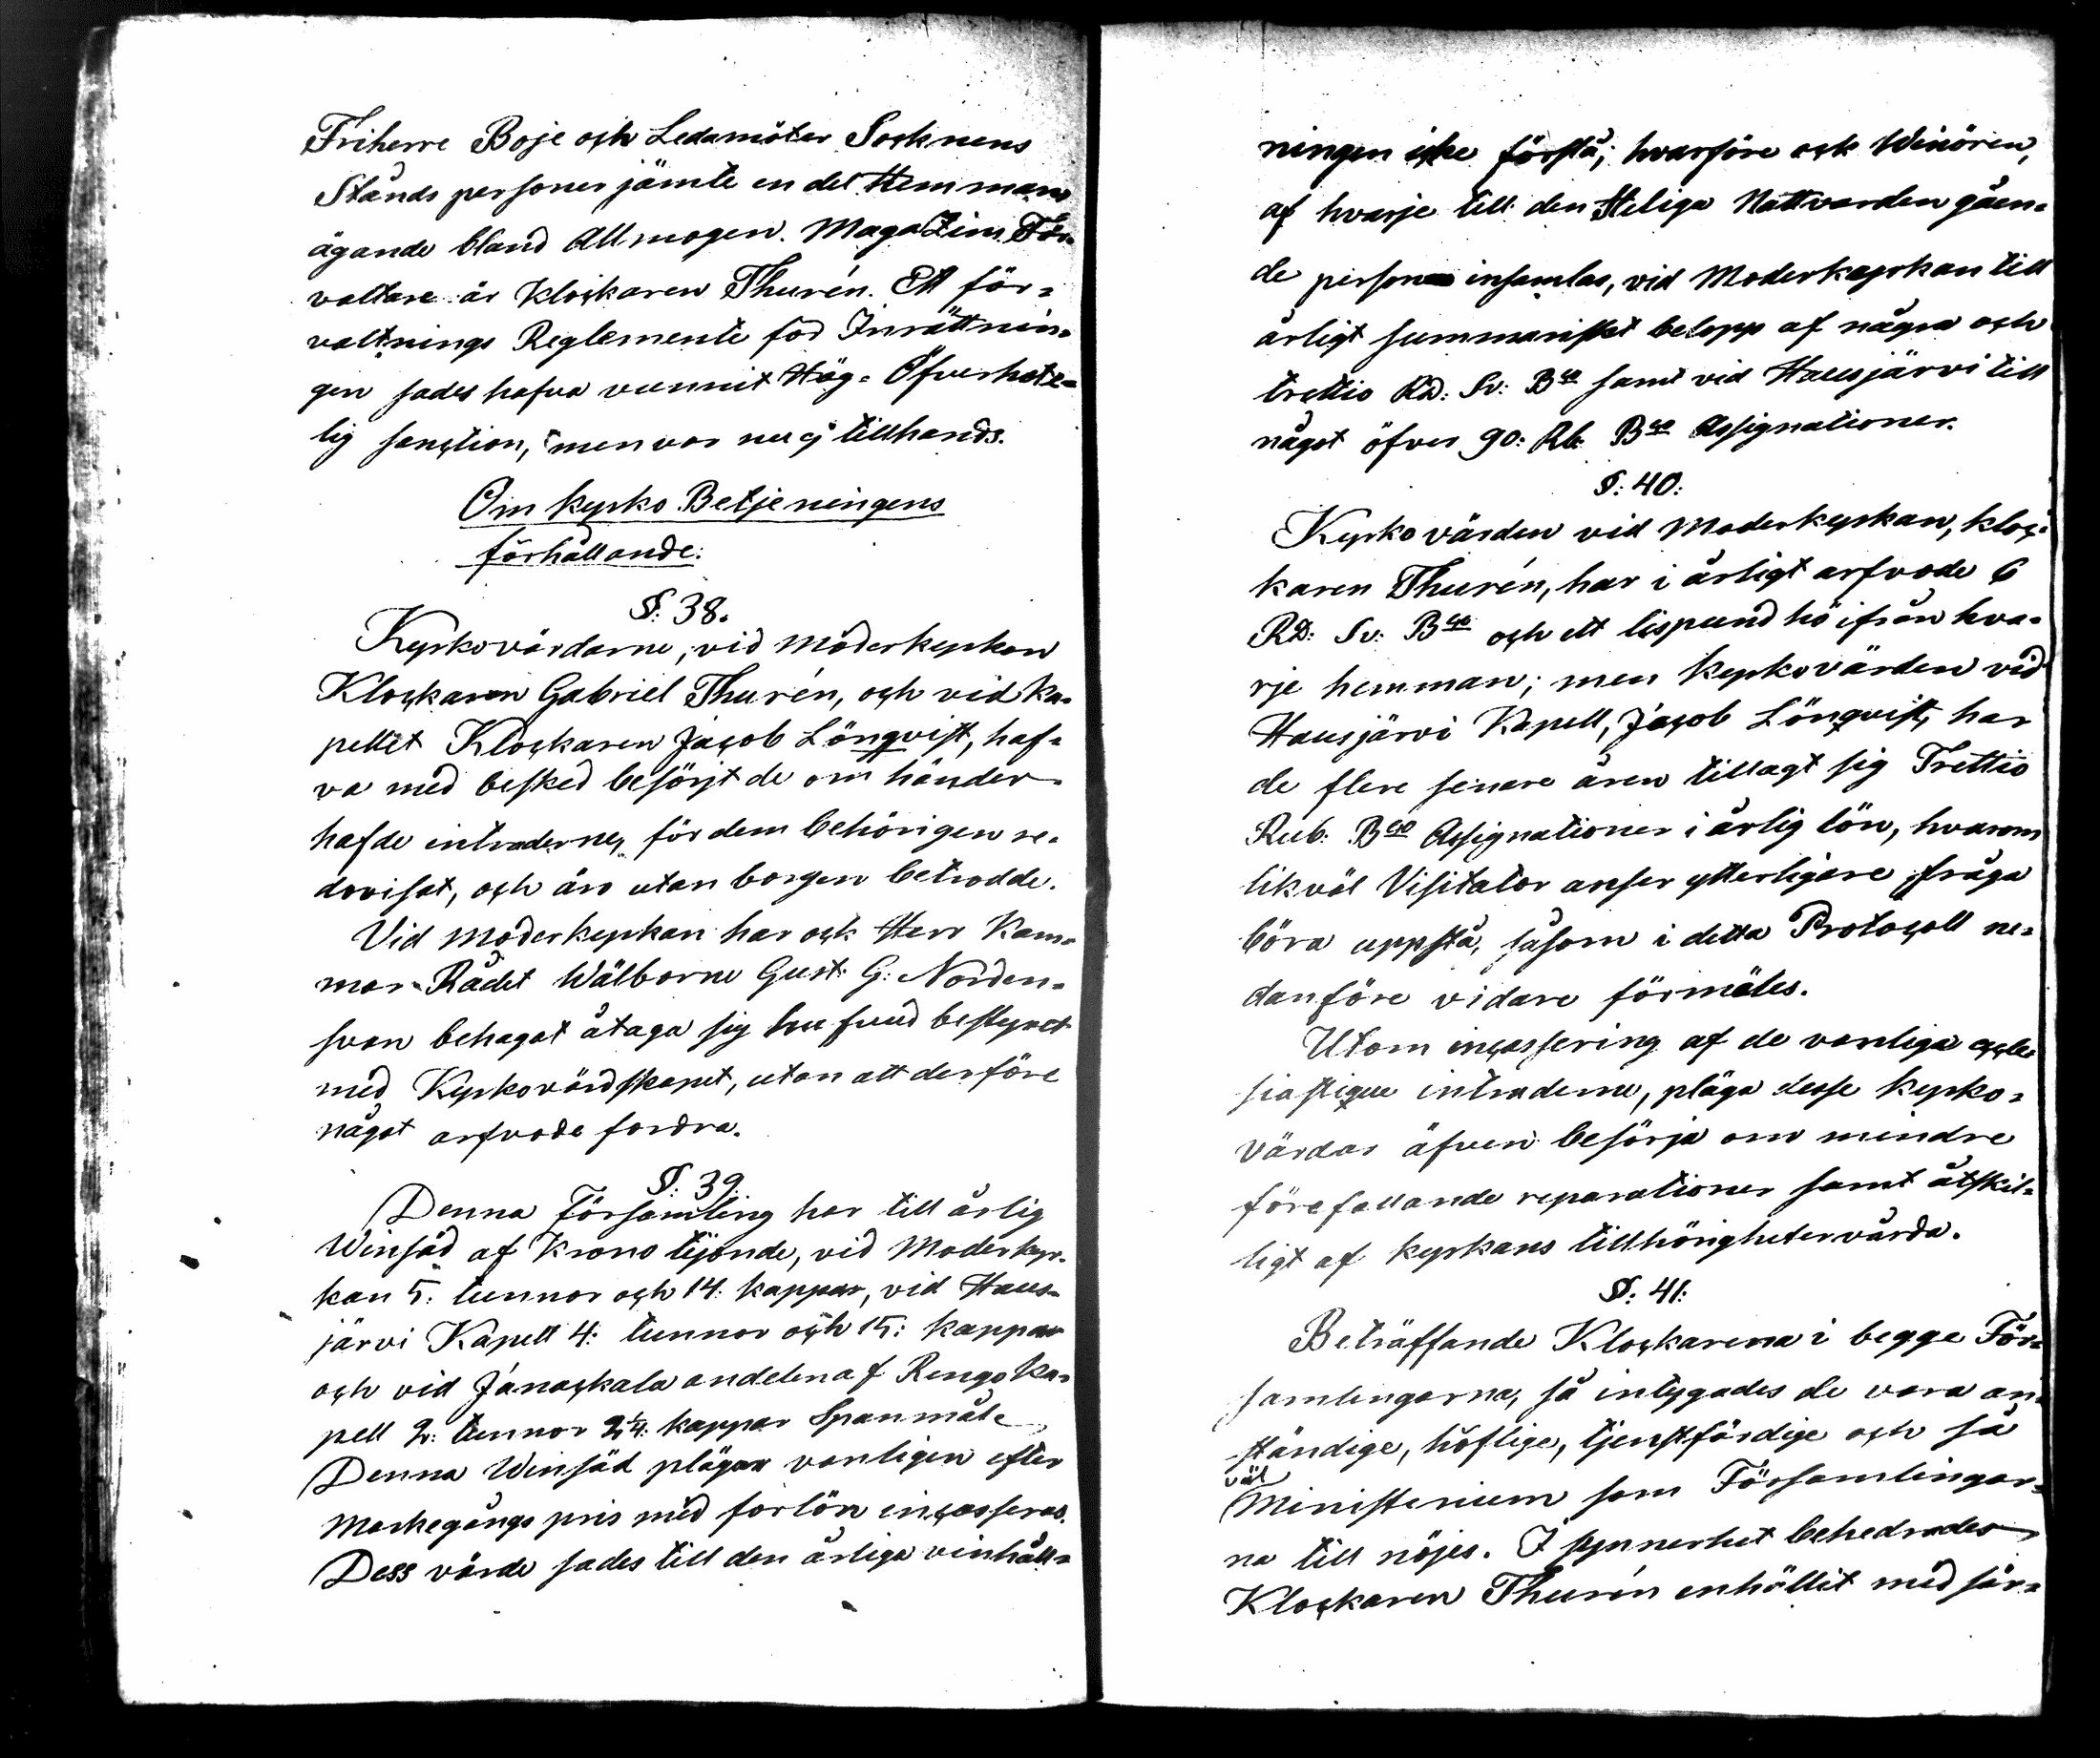 Friherre Boje och Ledamöter Socknens
Stånds personer jämte en del Hemmans
ägande bland Allmogen. Magazins För-
valtare är klockaren Thurén. Ett för-
valtnings Reglemente för Inrättnin-
gen sades hafva vunnit Hög- Öfverhete-
lig sanction, men var nu ej tillhands.
Om kyrko Betjeningens
förhållande:
§: 38.
Kyrkovärdarne, vid Moderkyrkan
Klockaren Gabriel Thurén, och vid Ka-
pellet Klockaren Jacob Lönqvist, haf-
va med besked besörjt de om händer-
hafde intraderne, för dem behörigen re-
dovisat, och äro utan borgen betrodde.
Vid Moderkyrkan har ock Herr Kam-
mar-Rådet Wälborne Gust: G: Norden-
svan behagat åtaga sig hufvud bestyret
med Kyrkovärdskapet, utan att derföre
något arfvode fordra.
§: 39.
Denna Församling har till årlig
Winsäd af Krono tijonde, vid Moderkyr-
kan 5: tunnor och 14: kappar, vid Haus-
järvi Kapell 4: tunnor och 15: kappar
och vid Janackala andelen af Rengo Ka-
pell 2: tunnor 2 1/4: kappar Spanmål.
Denna Winsäd plägar vanligen efter
Markegångs pris med forlön incasseras.
Dess värde sades till den årliga vinhåll-
ningen icke förslå; hvarföre ock Winören,
af hvarje till den Heliga Nattvarden gåen-
de person insamlas, vid Moderkyrkan till
årligt summariskt belopp af några och
trettio RD: Sv: Bco samt vid Hausjärvi till
något öfver 90: Rb: Bco Assignationer.
§: 40:
Kyrkovärden vid Moderkyrkan, kloc-
karen Thurén, har i årligt arfvode 6
RD: Sv: Bco och ett lispund hö ifrån hva-
rje hemman; men kyrkovärden vid
Hausjärvi Kapell, Jacob Lönqvist, har
de flere senare åren tillagt sig Trettio
Rub: Bco Assignationer i årlig lön, hvarom
likväl Visitator anser ytterligare fråga
böra uppstå, såsom i detta Protocoll ne-
danföre vidare förmäles.
Utom incassering af de vanliga eccle
siastique intraderne, pläga desse kyrko-
värdar äfven besörja om mindre
förefallande reparationer samt åtskil-
ligt af kyrkans tillhörigheter vårda.
§: 41:
Beträffande Klockarena i begge För-
samlingarna, så intygades de vara an-
ständige, höflige, tjenstfärdige och så
väl
Ministerium som Församlingar-
na till nöjes. I synnerhet behedrades
Klockaren Thurén enhällit med sär-